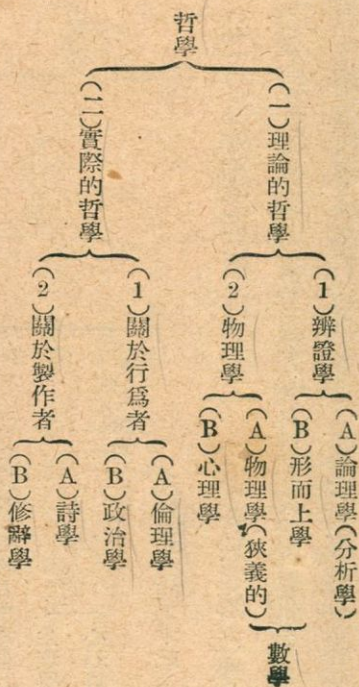 哲學
(一)理論的哲學
(1)辨證學
(A)論理學(分析學)
(B)形而上學
(2)物理學
(A)物理學(狹義的)
數學
(B)心理學
(二)實際的哲學
(1)關於行爲者
(A)倫理學
(B)政治學
(2)關於製作者
(A)詩學
(B)修辭學